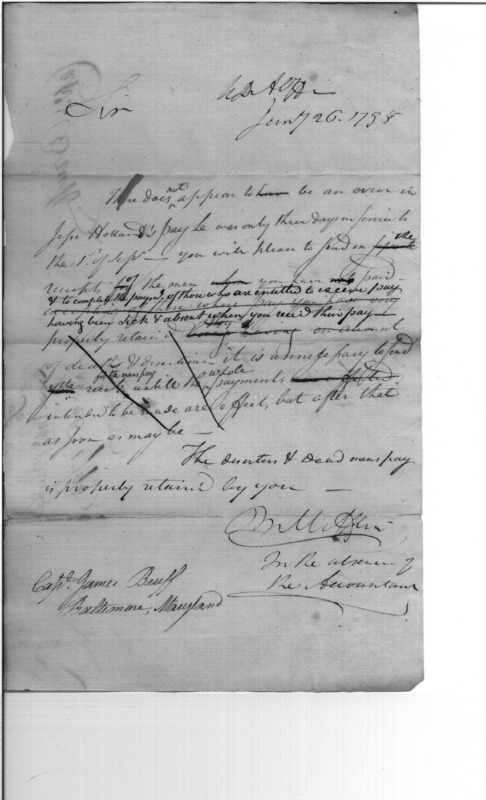 Sir
Jany 26. 1798
There does not appear to be an error in
Jesse Holland's pay he was only three days in service to
the 1st of Sept — you will please to send on the
receipts of the men you have paid
& to complete the paying of those who are entitled to receive pay
having been sick & absent when you recd their pay —
properly retain'd on account
of deaths & desertions — it is unnecessary to send
for the mens pay untill the whole payments
intended to be made are effect, but after that
as soon as may be —
The deserters & Dead mens pay
is properly retain'd by you —
In the absence of
the Accountant
Capt. James Bruff
Baltimore, Maryland